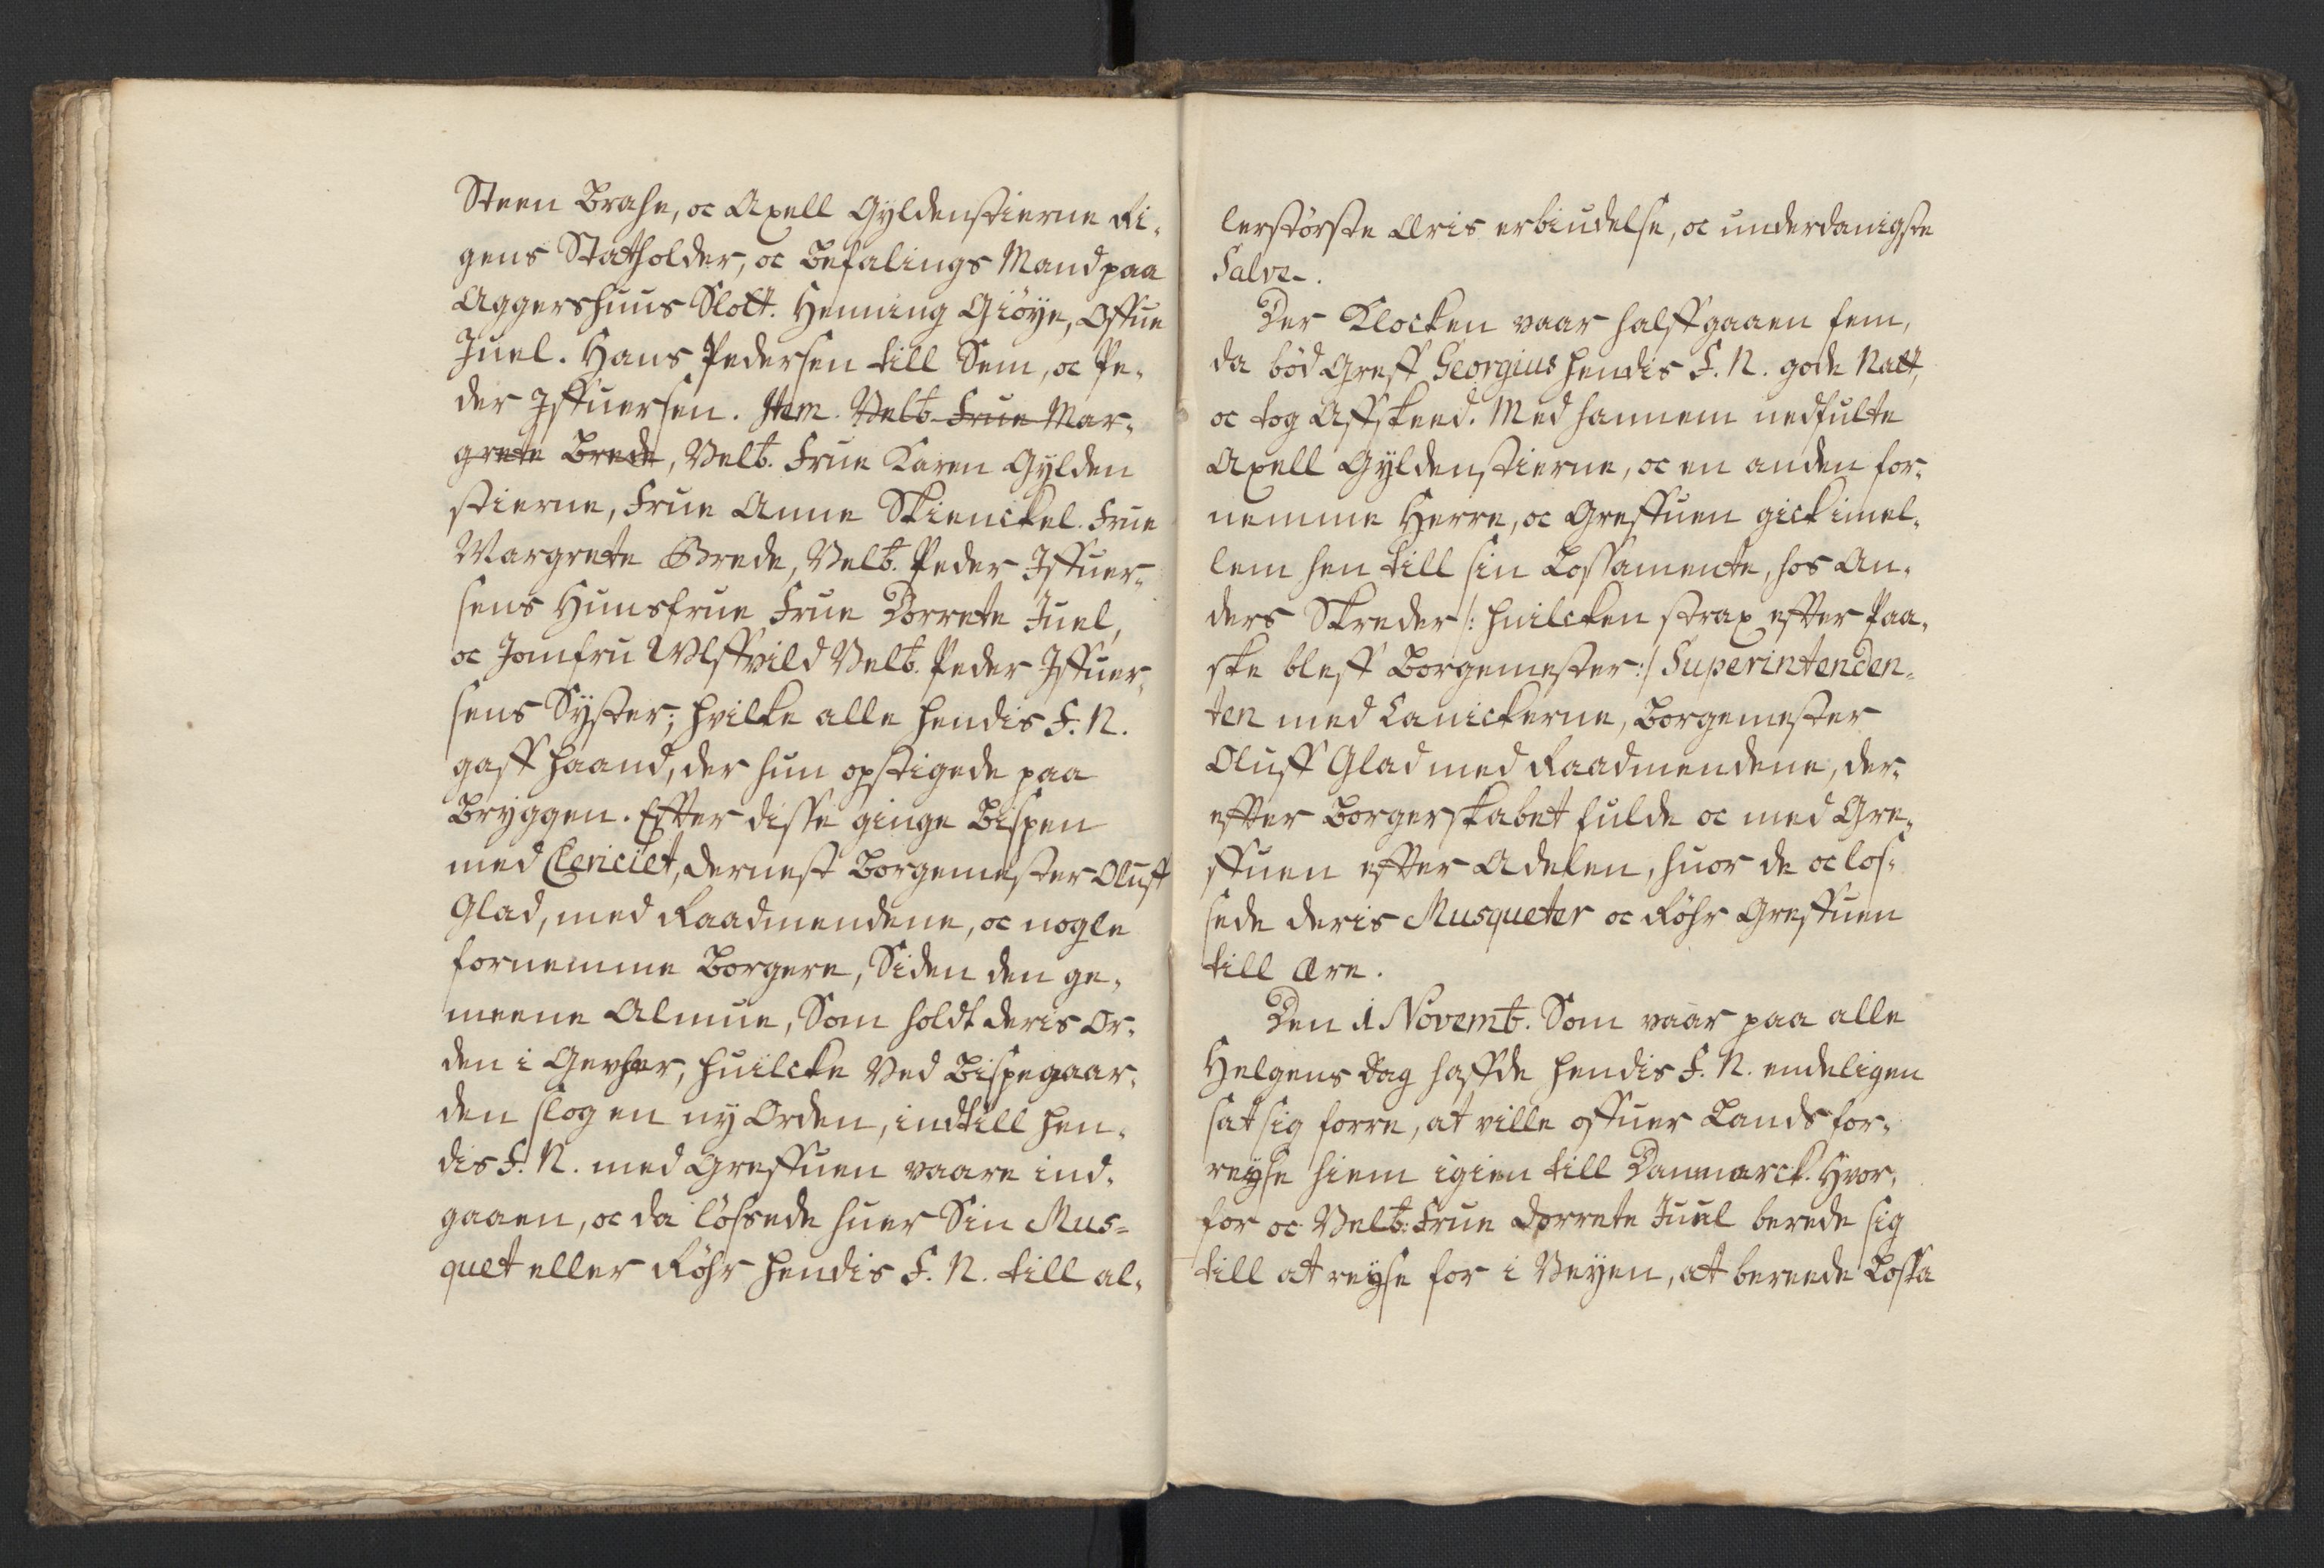 Steen Brahe, oc Axell Gyldenstierne Ri-
gens Statholder, oc Befalings Mand paa
Aggershuus Slott. Henning Giöye, Offue
Juel. Hans Pedersen till Sem, oc Pe-
der Iffuersen. Item. Velb. Frue Mar-
grete Brede, Velb. Frue Karen Gylden
stierne, Frue Anne Skienckel. Frue
Margrete Brede, Velb. Peder Iffuer-
sens Huusfrue Frue Dorrete Juel,
oc Jomfru Wlffvild Velb. Peder Iffuer-
sens Syster; hvilke alle hendis F. N.
gaff haand, der hun opstigede paa
Bryggen. Effter disse ginge Bispen
med Clericiet, dernest Borgemester Oluff
Glad, med Raadmendene, oc nogle
fornemme Borgere, Siden den ge-
meene Almue, Som holdt deris Or-
den i Gevher, huilcke Ved Bispegaar-
den slog en ny Orden, indtill hen-
dis F. N. med Greffuen vaare ind-
gaaen, oc da lössede huer Sin Mus-
quet eller Röhr hendis F. N. till al-
lerstörste Æris erbiudelse, oc underdanigste
Salve.
Der Klocken vaar halffgaaen fem,
da böd Greff Georgius hendis F. N. gode Natt,
oc tog Affskeed. Med hannem nedfulte
Axell Gyldenstierne, oc en anden for-
nemme Herre, oc Greffuen gick imel-
lem hen till sin Lossamente, hos An-
ders Skreder /: huilcken strax effter Paa-
ske bleff Borgemester :/ Superintenden-
ten med Canickerne, Borgemester
Oluff Glad med Raadmendene, der-
effter Borgerskabet fulde oc med Gre-
ffuen effter Adelen, huor de oc los-
sede deris Musqueter oc Röhr Greffuen
till Ære.
Den 1 Novemb. Som vaar paa alle
Helgens Dag haffde hendis F. N. endeligen
sat sig forre, at ville offuer Lands for-
reyse hiem igien till Danmarck. Hvor-
for oc Velb: Frue Dorrete Juul berede sig
till at reyse for i Veyen, at bereede Lossa